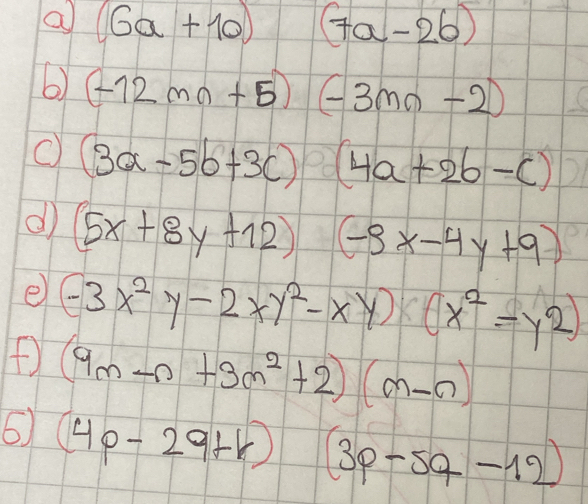 a) (6a + 10) (7a - 2b)
b) (-12mn + 5) (-3mn - 2)
c) (3a - 5b + 3c) (4a + 2b - c)
d) (5x + 8y + 12) (-9x - 4y + 9)
e) (-3x² y - 2xy² - xy) (x² - y²)
f) (9m - n + 3m² + 2) (m - n)
6) (4p - 2q + r) (3p - 5q - 12)